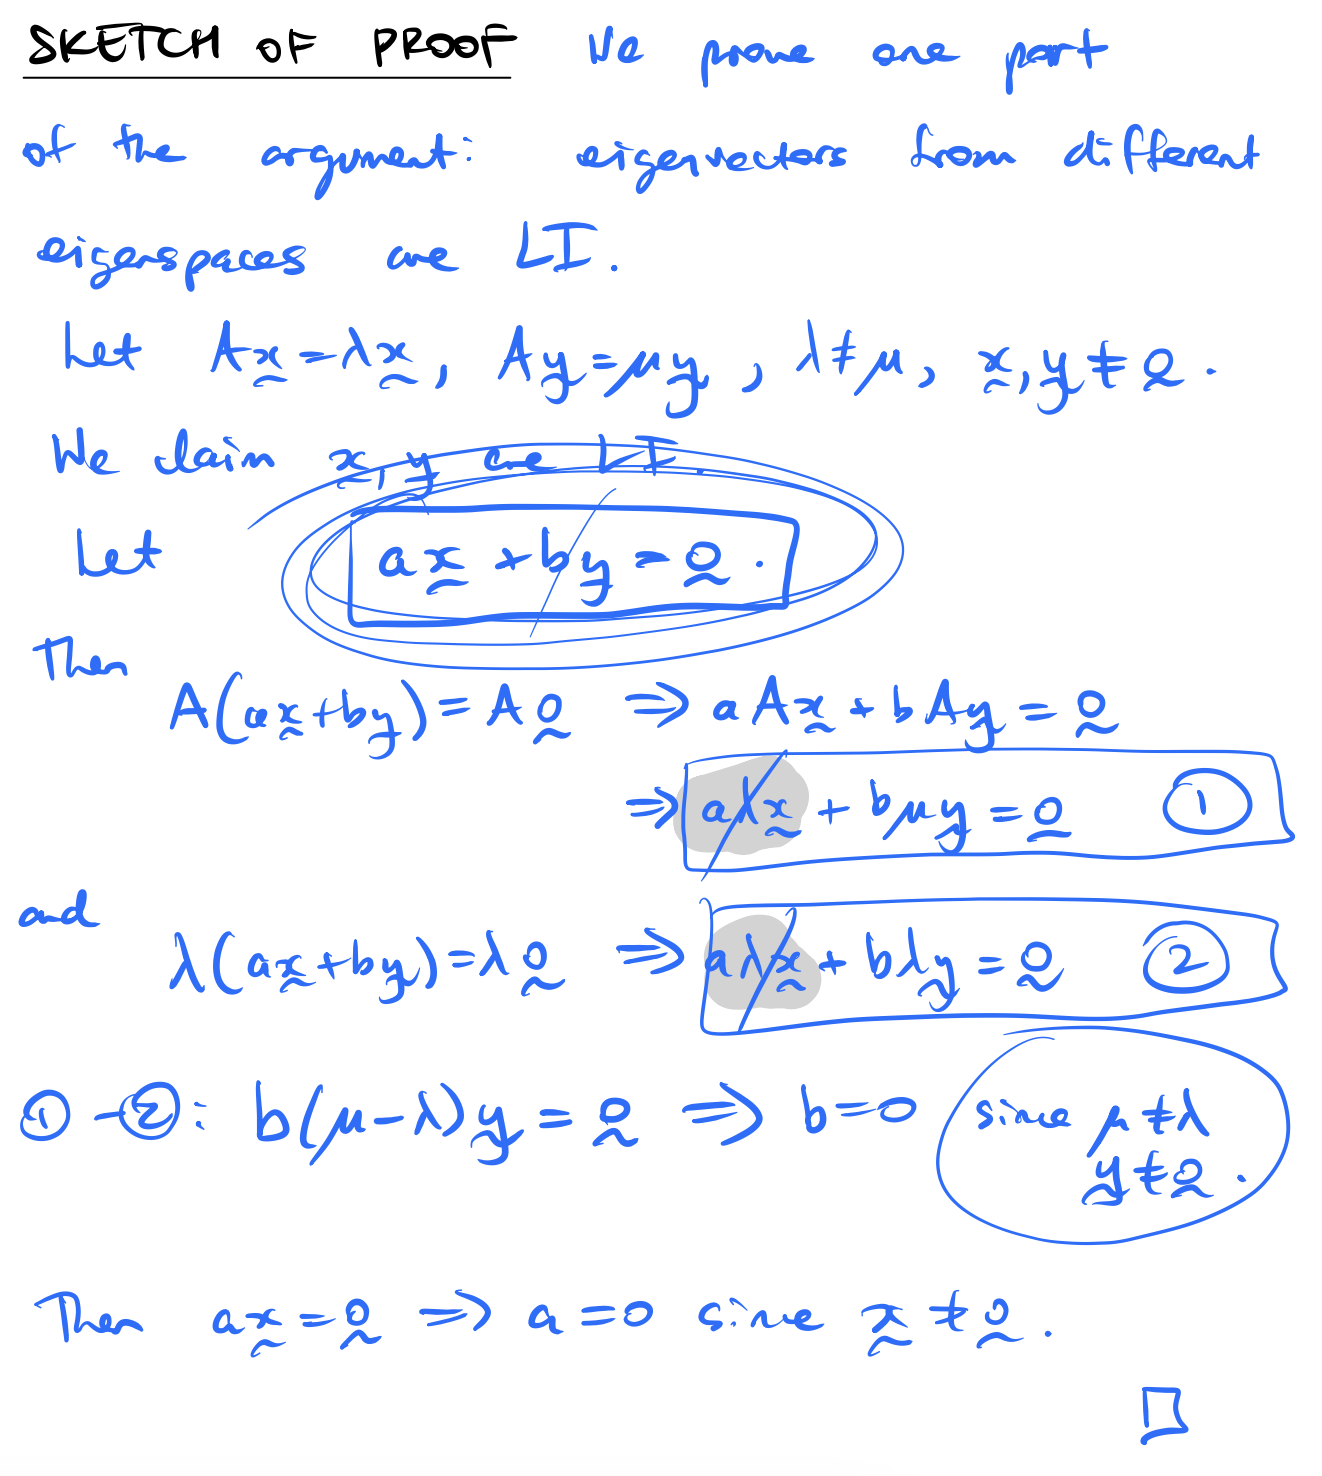 SKETCH OF PROOF We prove one part
of the argument: eigenvectors from different
eigenspaces are LI.
Let Ax̰ = λx̰, Ay̰ = μy̰, λ ≠ μ, x̰, y̰ ≠ 0̰.
We claim x̰, y̰ are LI.
Let ax̰ + by̰ = 0̰.
Then
A(ax̰ + by̰) = A0̰ ⇒ aAx̰ + bAy̰ = 0̰
⇒ aλx̰ + bμy̰ = 0̰ ①
and
λ(ax̰ + by̰) = λ0̰ ⇒ aλx̰ + bλy̰ = 0̰ ②
① - ②: b(μ - λ)y̰ = 0̰ ⇒ b = 0 since μ ≠ λ
y̰ ≠ 0̰.
Then ax̰ = 0̰ ⇒ a = 0 since x̰ ≠ 0̰.
□